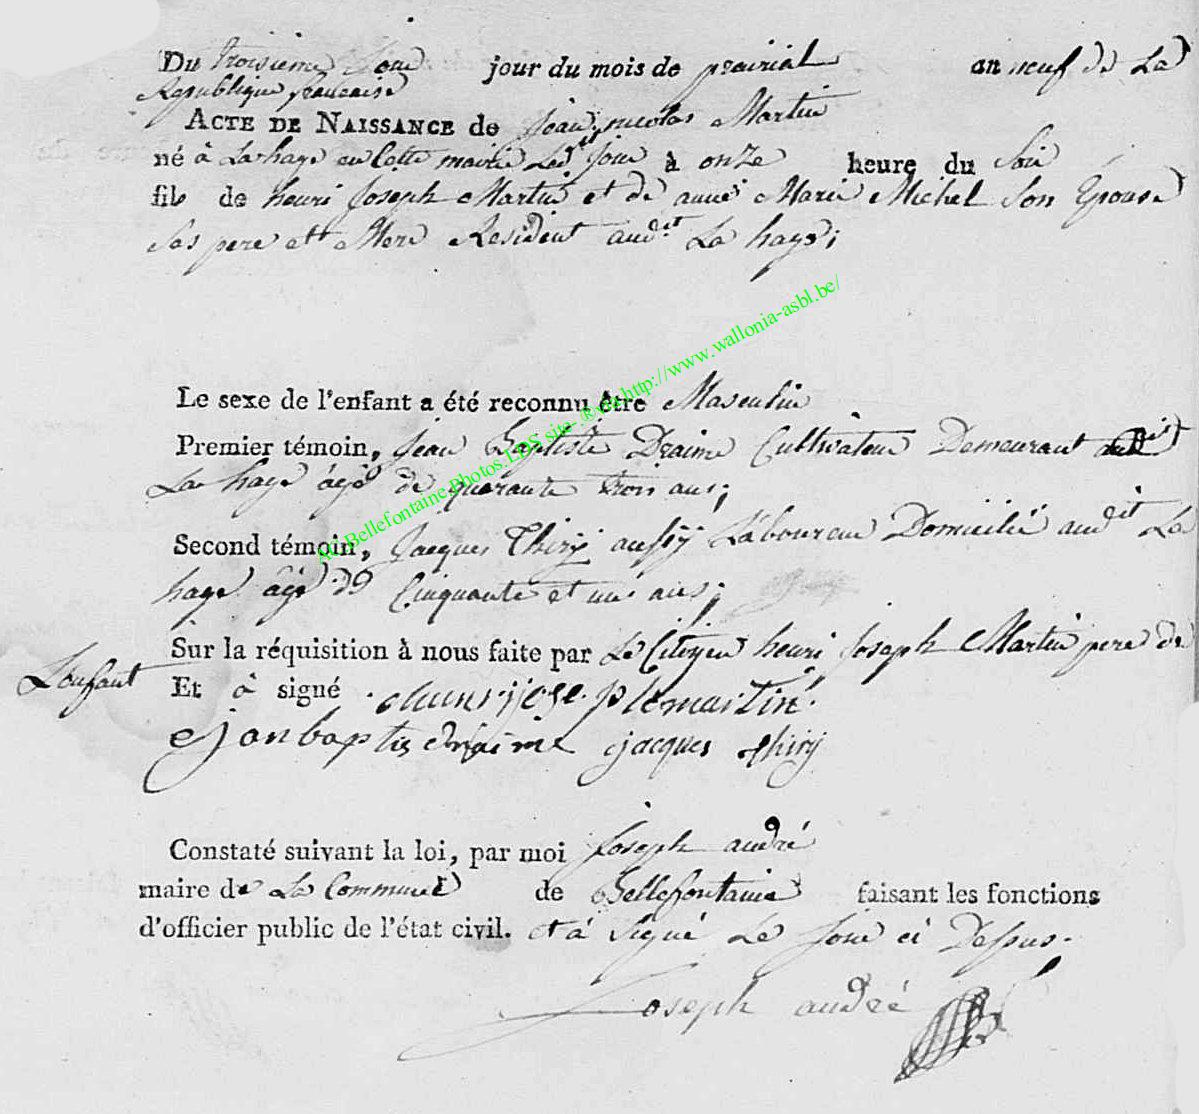 Du troisieme Jour jour du mois de prairial an neuf de La
Republique francaise
ACTE DE NAISSANCE de Jean nicolas Martin
né à La hage en Cette mairie Led.it Jour à onze heure du Soir
fils de henri Joseph Martin et de anne Marie Michel Son Epouse
Ses pere ett Mere Resident aud.it La hage;
Le sexe de l'enfant a été reconnu être Masculin
Premier témoin, Jean Baptiste Draime Cultivateur Demeurant
La hage âgé de quarante trois ans;
Second témoin, Jacques Thiry aussÿ Laboureur Domicilié audit La
hage âgé de Cinquante et un ans;
Sur la réquisition à nous faite par Le Citoyen henri Joseph Martin pere de
L'enfant Et à signé
janbaptis draime jacques thiry
Constaté suivant la loi, par moi Joseph andré
maire de La Commune de Bellefontaine faisant les fonctions
d'officier public de l'état civil. et à Signé Le Jour ci Dessus.
Joseph andré
AC.Bellefontaine.Photos.LDS site http://www.wallonia-asbl.be/